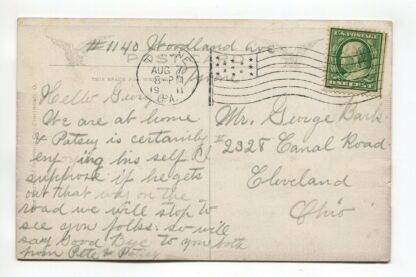 #1140 Woodland Ave
POST CARD
THIS SPACE
AUG
8-PM
19 11
PA.
U.S. POSTAGE
ONE CENT
Hello George
We are at home
& Patsey is certainly
enjoying his self
suppose if he gets
out that way on the
road we will stop to
see you folks. So will
say Good Bye to you both
from Pete & Patsey
Mr. George Bark
#2328 Canal Road
Cleveland
Ohio